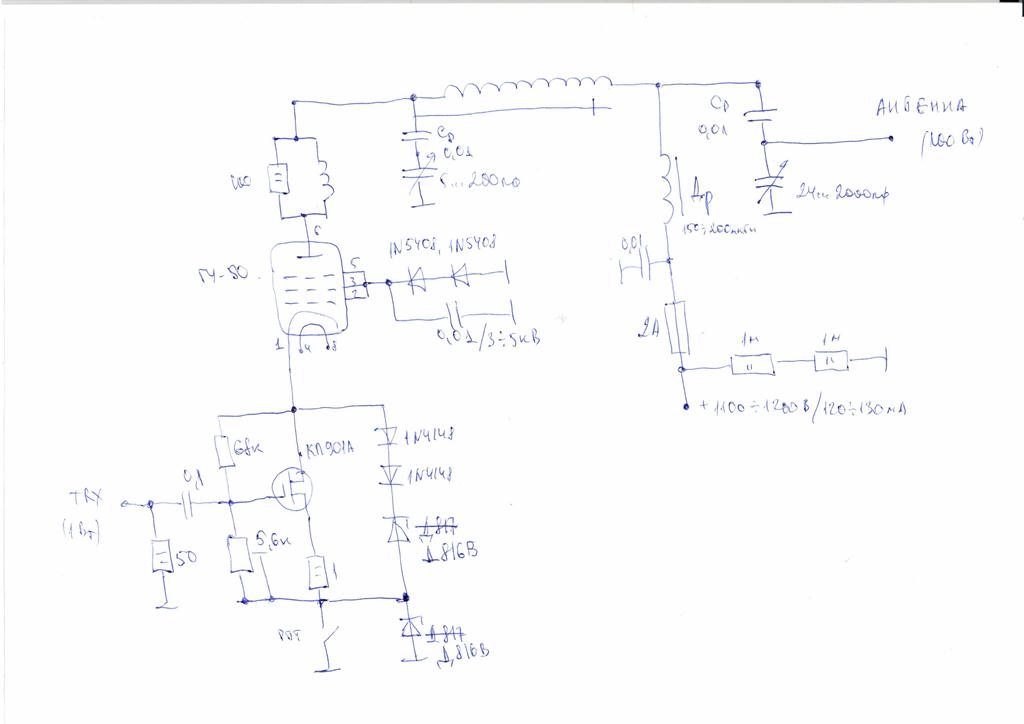 Ср
0,01
АНТЕННА
(100 Вт)
Ср
0,01
5...200пф
24...2000пф
Др
150÷200мкГн
100
6
ГУ-50
5
3
2
1
4
8
1N5408, 1N5408
0,01/3÷5кВ
0,01
2А
1м
1м
+1100÷1200В/120÷130мА
68к
КП901А
1N4148
1N4148
0,1
TRX
(1 Вт)
50
5,6к
1
Д817
Д816В
РТТ
Д817
Д816В